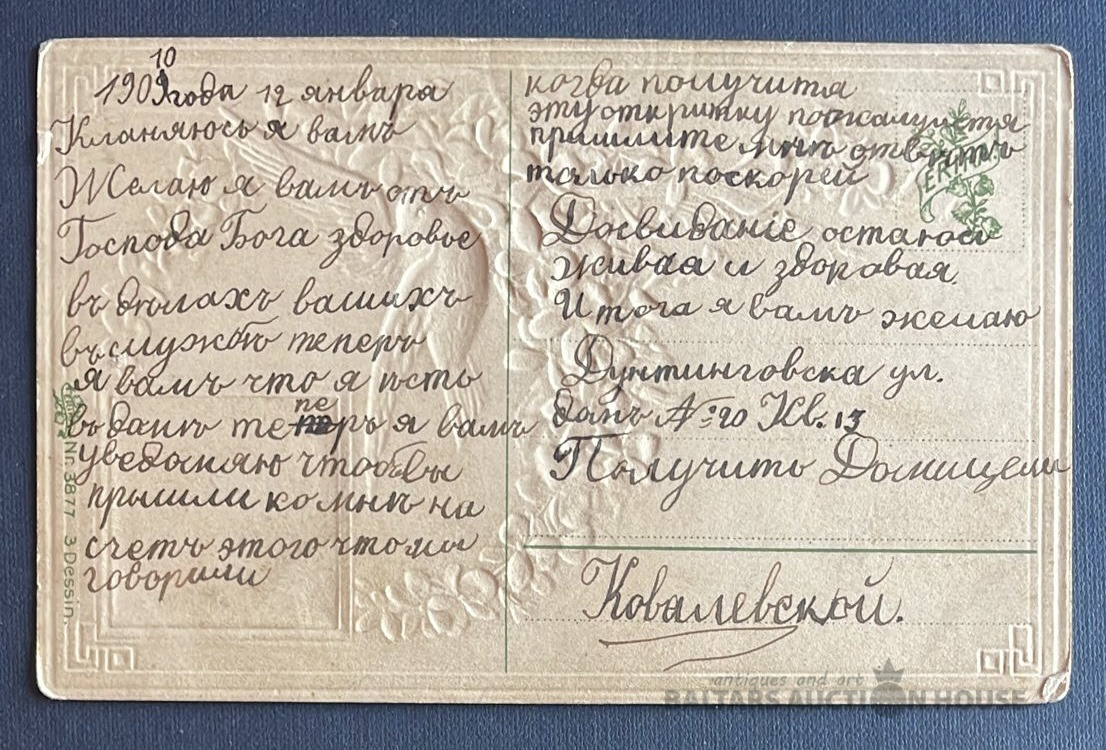 10
1909 года 12 января
Кланяюсь я вамъ
Желаю я вамъ отъ
Господа Бога здоровье
въ дѣлахъ вашихъ
въ службѣ теперь
я вамъ что я
въ теперь я вамъ
уведомляю чтобы вы
пришли ко мнѣ на
счетъ этого что мы
говорили
когда получитя
эту открытку пожалуйстя
пришлите мнѣ отвѣтъ
только поскорей
Досвиданіе остаюсь
живая и здоровая
И тога я вамъ желаю
ул.
№ 20 Кв. 13
Получить
Ковалевской.
ERIKA
Nr. 3877 3 Dessin.
antiques and art
BALTARS AUCTION HOUSE